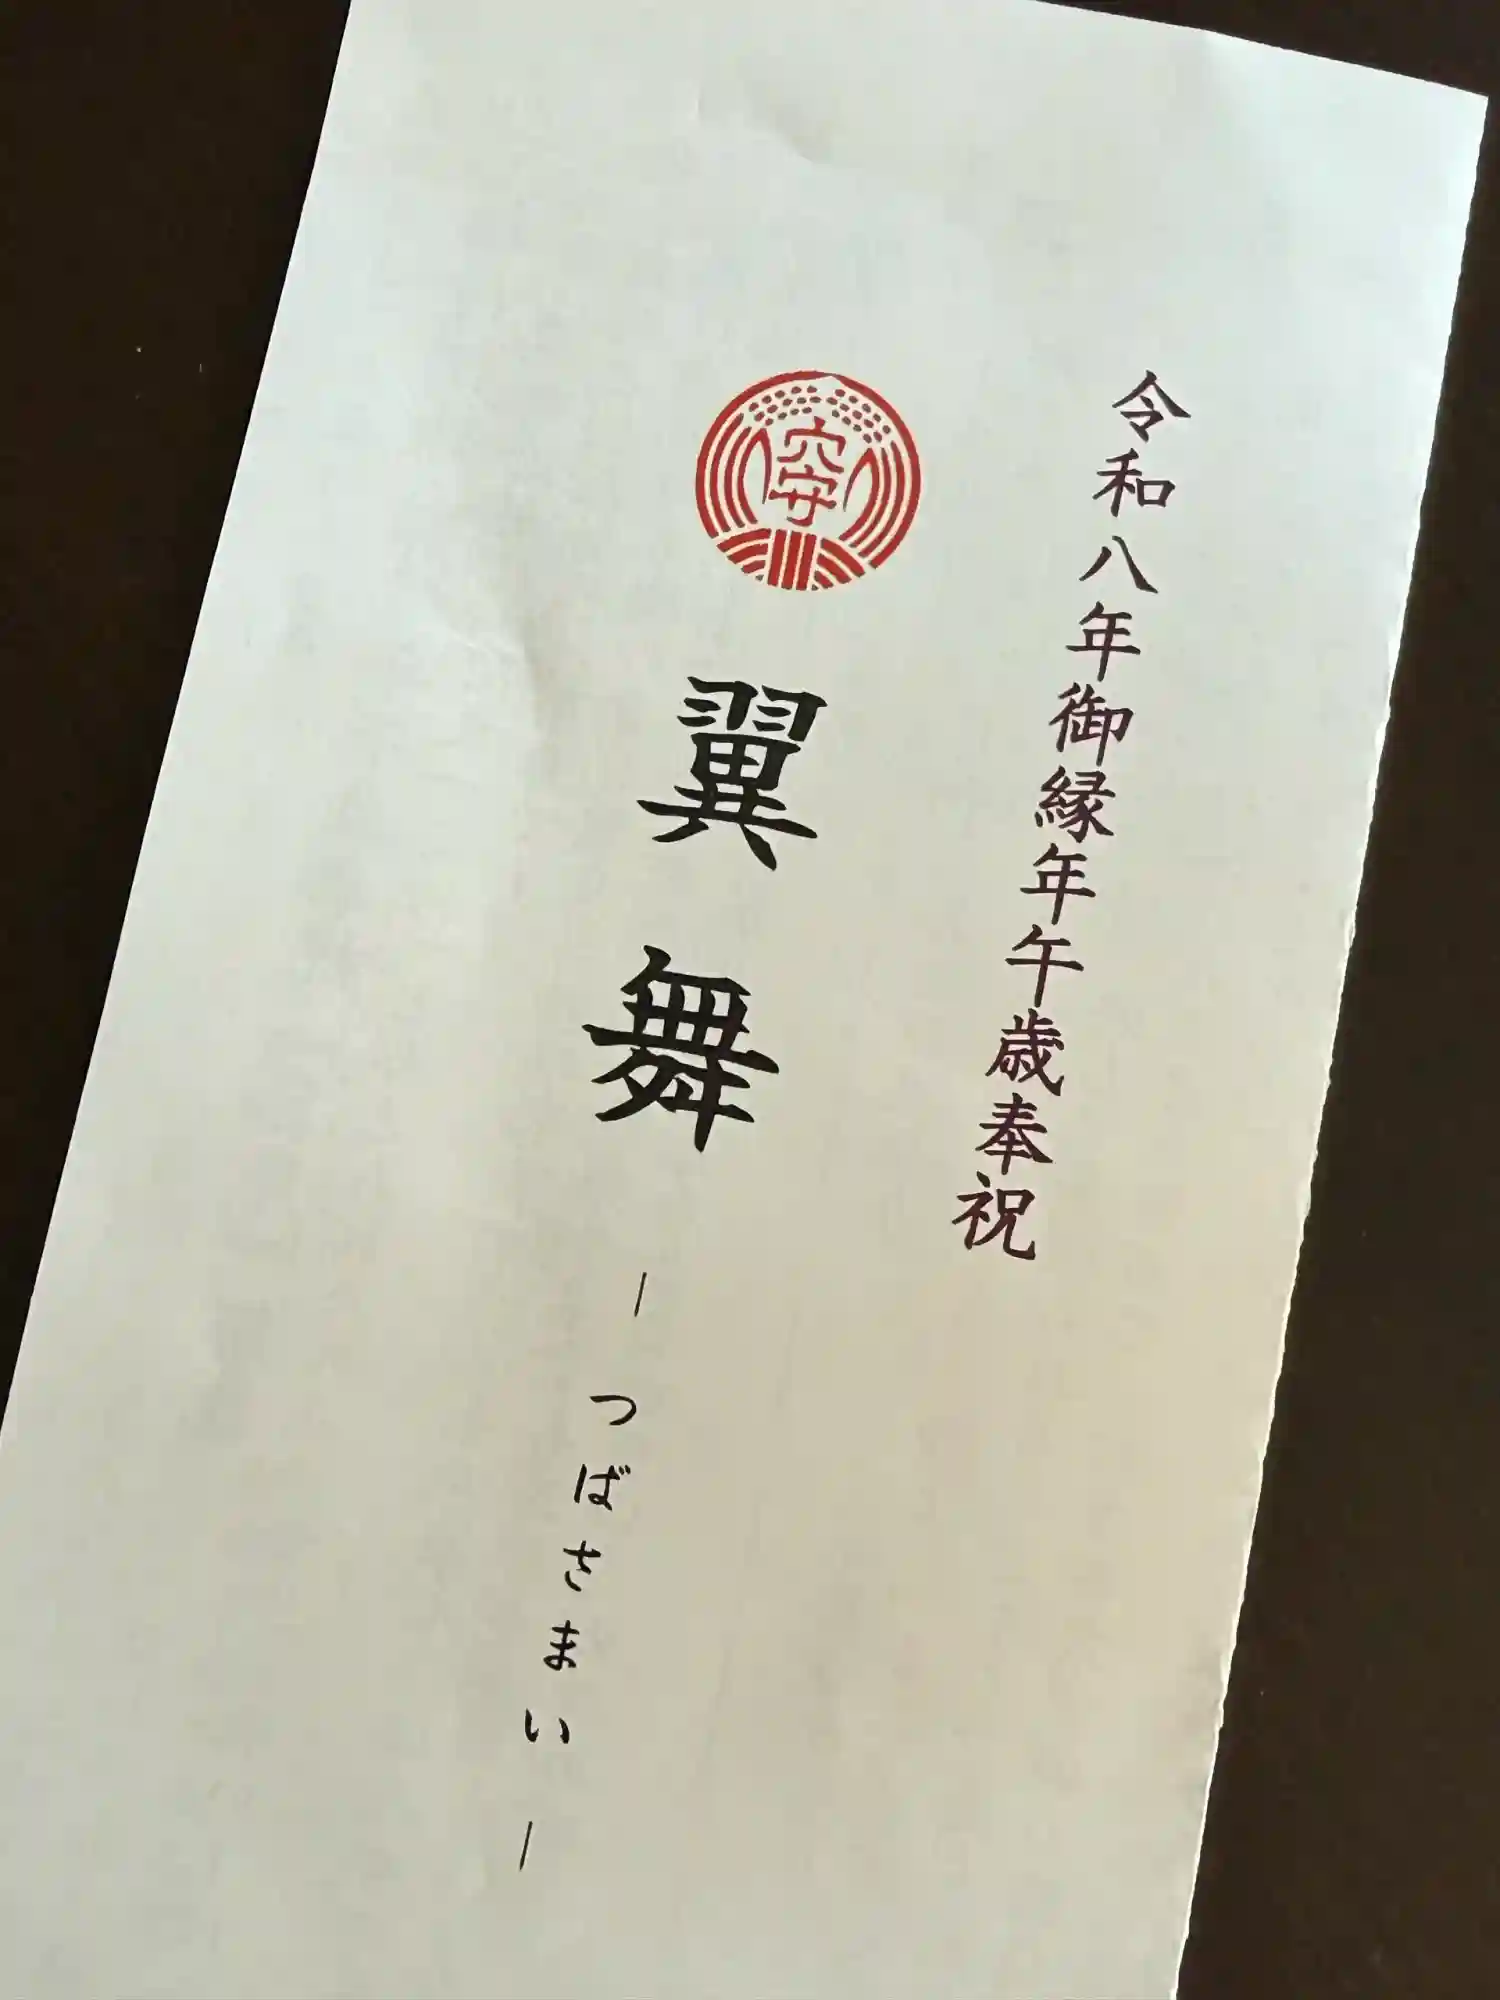 令和八年御縁年午歳奉祝
穴守
翼舞
― つばさまい ―